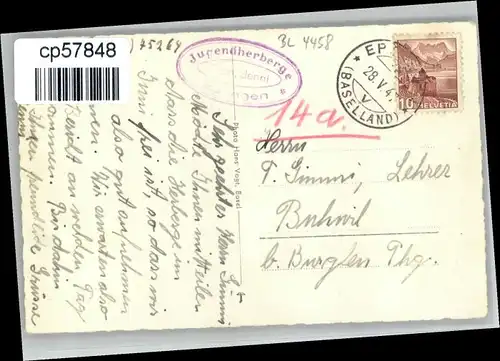 cp57848
75264
BL 4458
Jugendherberge
EP
28.V.4
(BASELLAND)
10
HELVETIA
14a.
Photo Hans Vogt Basel
Herrn
F. Simmi, Lehrer
Buhwil
b. Burglen Thg.
Sehr geehrter Herr Simmi
Möchte Ihnen mitteilen
dass die Herberge im
Juni frei ist, so dass wir
also gut annehmen
Wir erwarten also
Bericht an welchem Tag
kommen. Bis dahin
freundliche Grüsse